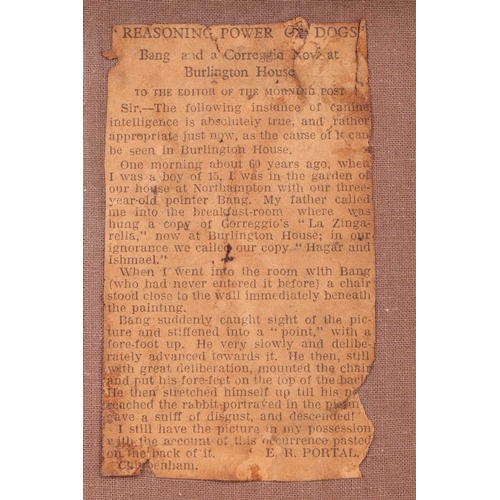 "REASONING POWER OF DOGS"
Bang and a Correggio Now at
Burlington House
TO THE EDITOR OF THE MORNING POST
Sir,—The following instance of canine
intelligence is absolutely true, and rather
appropriate just now, as the cause of it can
be seen in Burlington House.
One morning about 60 years ago, when
I was a boy of 15, I was in the garden of
our house at Northampton with our three-
year-old pointer Bang. My father called
me into the breakfast-room where was
hung a copy of Correggio's "La Zinga-
rella," now at Burlington House; in our
ignorance we called our copy "Hagar and
Ishmael."
When I went into the room with Bang
(who had never entered it before) a chair
stood close to the wall immediately beneath
the painting.
Bang suddenly caught sight of the pic-
ture and stiffened into a "point," with a
fore-foot up. He very slowly and delibe-
rately advanced towards it. He then, still
with great deliberation, mounted the chair
and put his fore-feet on the top of the back.
He then stretched himself up till his
reached the rabbit portrayed in the
gave a sniff of disgust, and descended
I still have the picture in my possession
with the account of this occurrence pasted
on the back of it. E. R. PORTAL.
Chippenham.